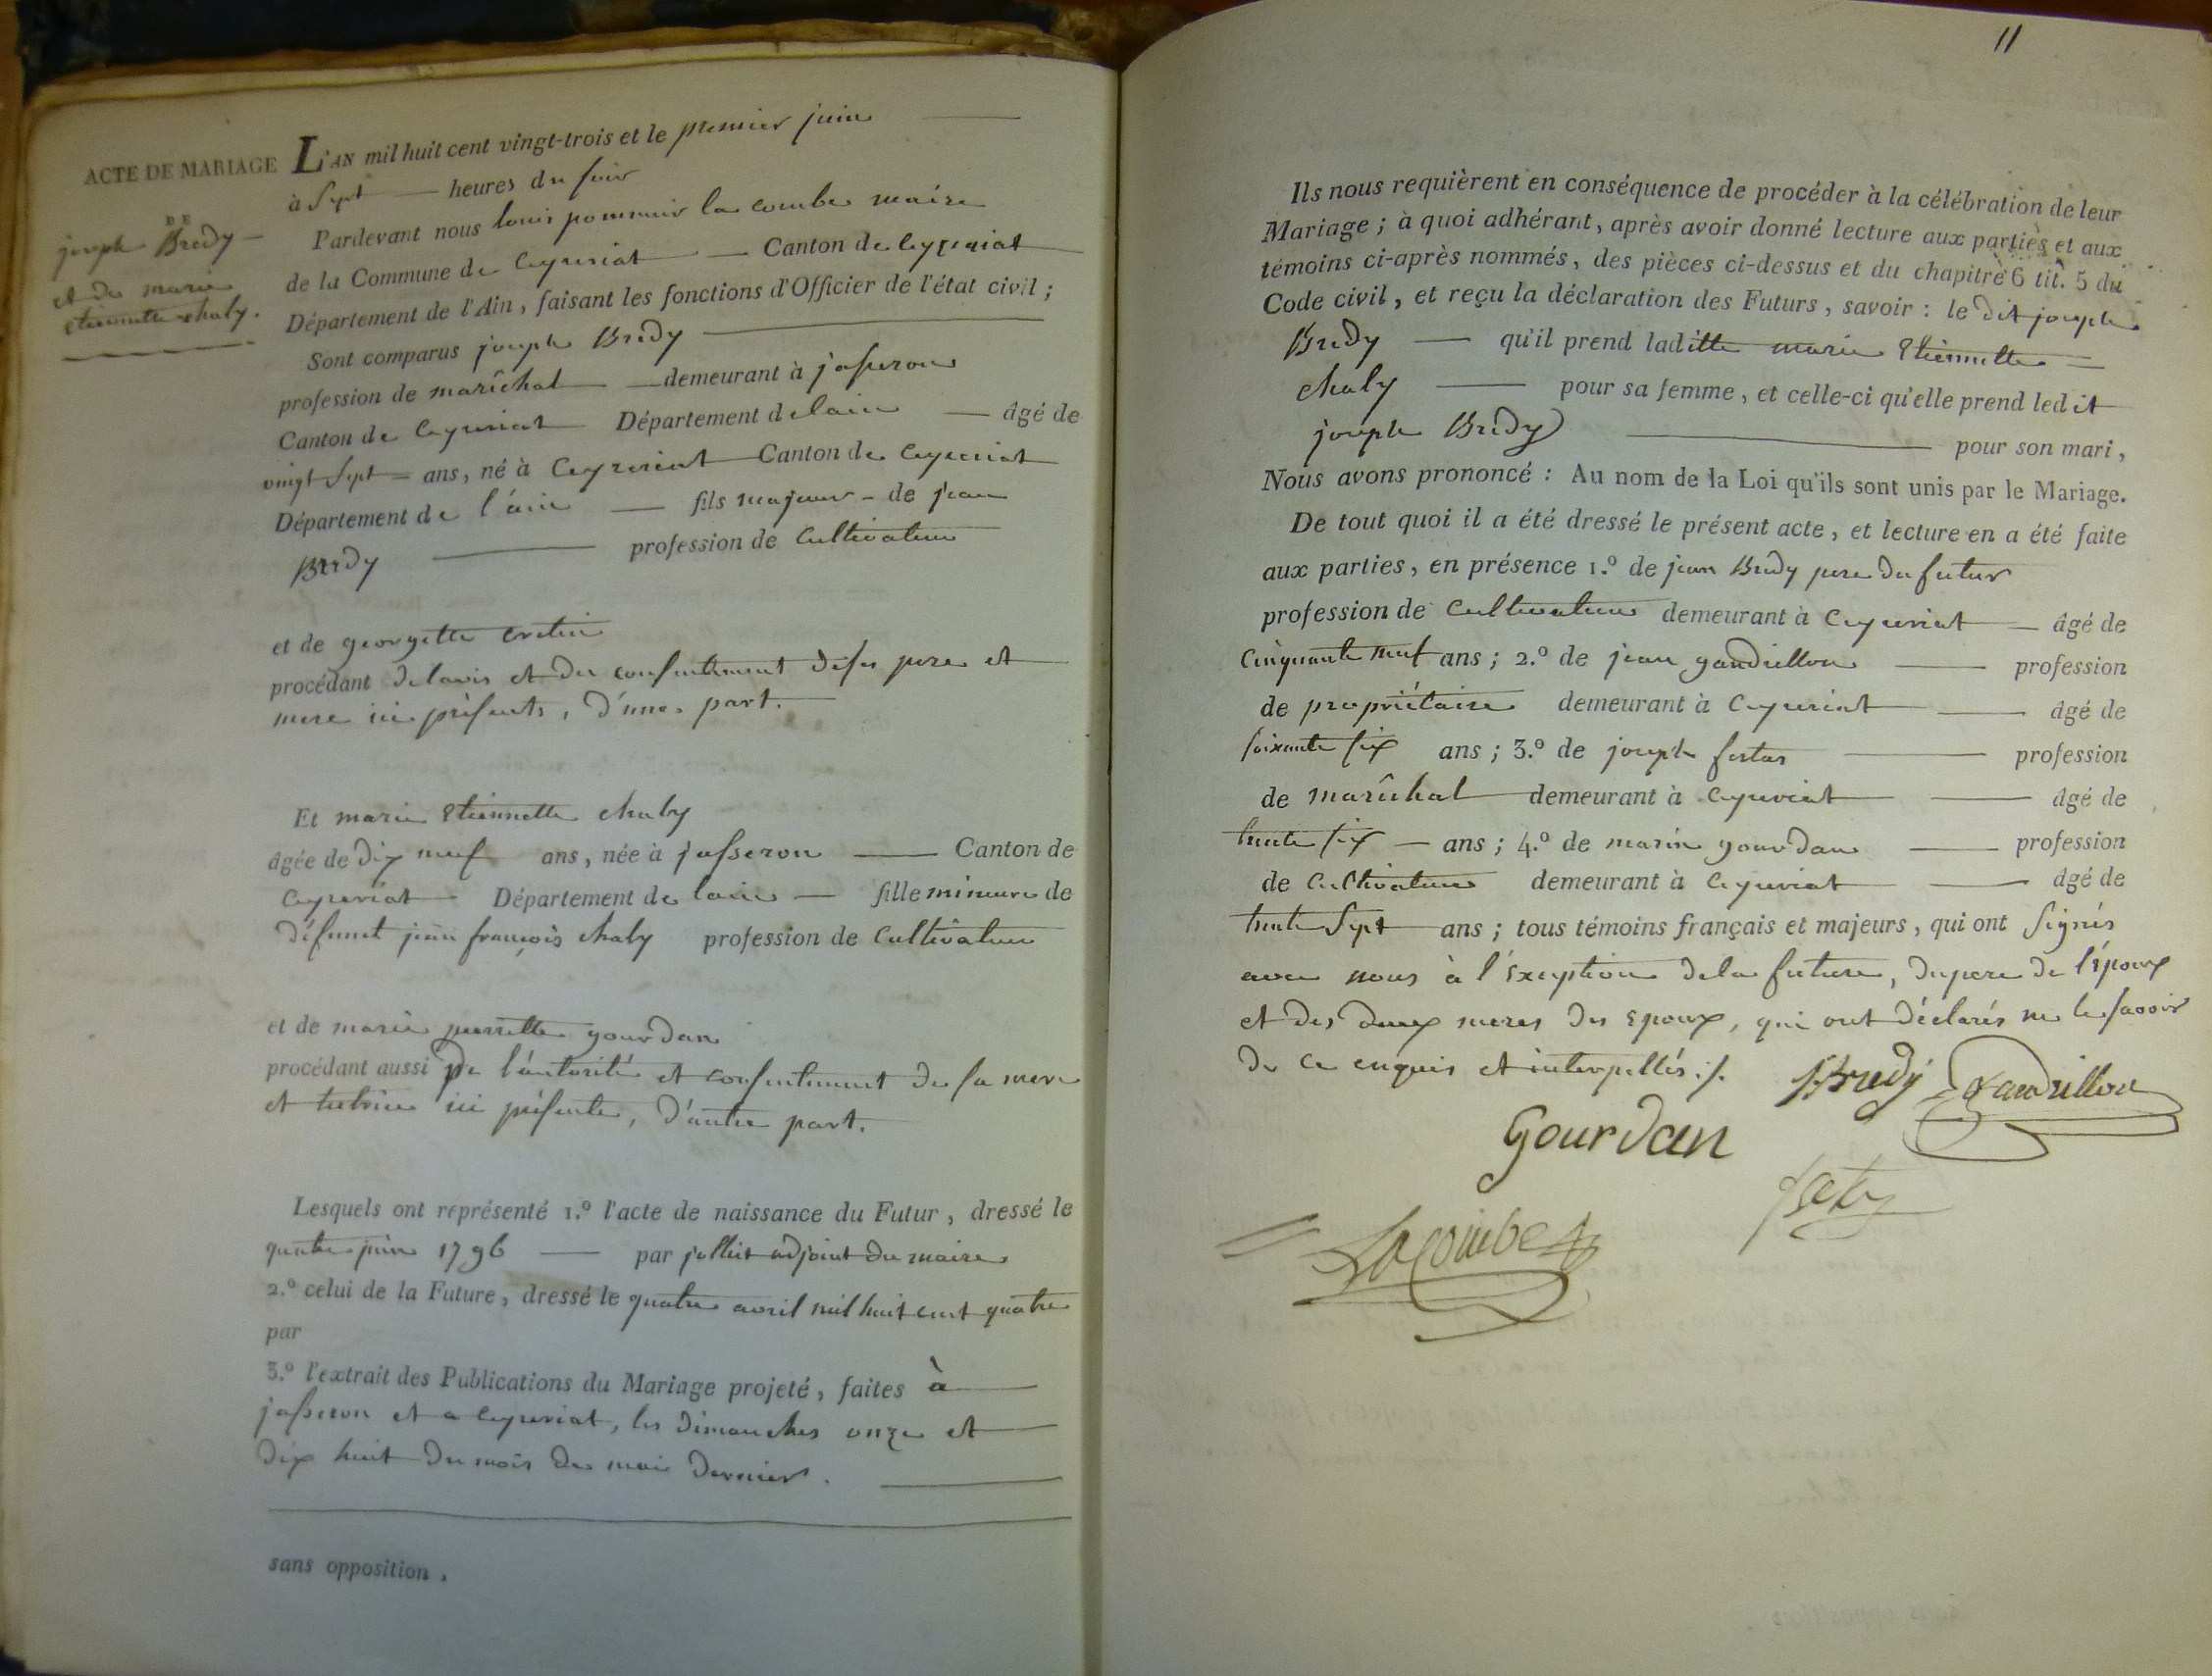 ACTE DE MARIAGE
DE
joseph Bredy
et de marie
etiennette chaby.
L'AN mil huit cent vingt-trois et le premier juin
à Sept heures du soir
Pardevant nous louis pommier la combe maire
de la Commune de Ceyzeriat Canton de Ceyzeriat
Département de l'Ain, faisant les fonctions d'Officier de l'état civil ;
Sont comparus joseph Bredy
profession de maréchal demeurant à jasseron
Canton de Ceyzeriat Département de lain âgé de
vingt Sept ans, né à Ceyzeriat Canton de Ceyzeriat
Département de l'ain fils majeur de jean
Bredy profession de Cultivateur
et de georgette cretin
procédant de lavis et du consentement de ses pere et
mere ici présents, d'une part.
Et marie Etiennette chaby
âgée de dix neuf ans, née à jasseron Canton de
Ceyzeriat Département de lain fille mineure de
défunt jean françois chaby profession de Cultivateur
et de marie pierrette gourdan
procédant aussi de l'autorité et consentement de sa mere
et tutrice ici présente, d'autre part.
Lesquels ont représenté 1.º l'acte de naissance du Futur, dressé le
quatre juin 1796 par adjoint du maire
2.º celui de la Future, dressé le quatre avril mil huit cent quatre
par
3.º l'extrait des Publications du Mariage projeté, faites à
jasseron et a Ceyzeriat, les dimanches onze et
dix huit du mois de mai dernier.
sans opposition.
11
Ils nous requièrent en conséquence de procéder à la célébration de leur
Mariage ; à quoi adhérant, après avoir donné lecture aux parties et aux
témoins ci-après nommés, des pièces ci-dessus et du chapitre 6 tit. 5 du
Code civil, et reçu la déclaration des Futurs, savoir : le dit joseph
Bredy qu'il prend laditte marie Etiennette
chaby pour sa femme, et celle-ci qu'elle prend ledit
joseph Bredy pour son mari,
Nous avons prononcé : Au nom de la Loi qu'ils sont unis par le Mariage.
De tout quoi il a été dressé le présent acte, et lecture en a été faite
aux parties, en présence 1.º de jean Bredy pere du futur
profession de Cultivateur demeurant à Ceyzeriat âgé de
Cinquante neuf ans ; 2.º de jean gandrillon profession
de propriétaire demeurant à Ceyzeriat âgé de
soixante six ans ; 3.º de joseph profession
de maréchal demeurant à Ceyzeriat âgé de
trente six ans ; 4.º de marin gourdan profession
de Cultivateur demeurant à Ceyzeriat âgé de
trente Sept ans ; tous témoins français et majeurs, qui ont Signés
avec nous à l'Exception de la future, du pere de l'époux
et des deux meres des Epoux, qui ont déclarés ne le savoir
de ce enquis et interpellés ./.
Bredy Gandrillon
Gourdan
Lacombe